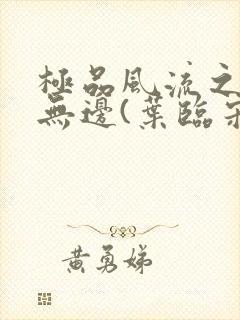 極品風流之
無邊(葉臨
黃勇娣